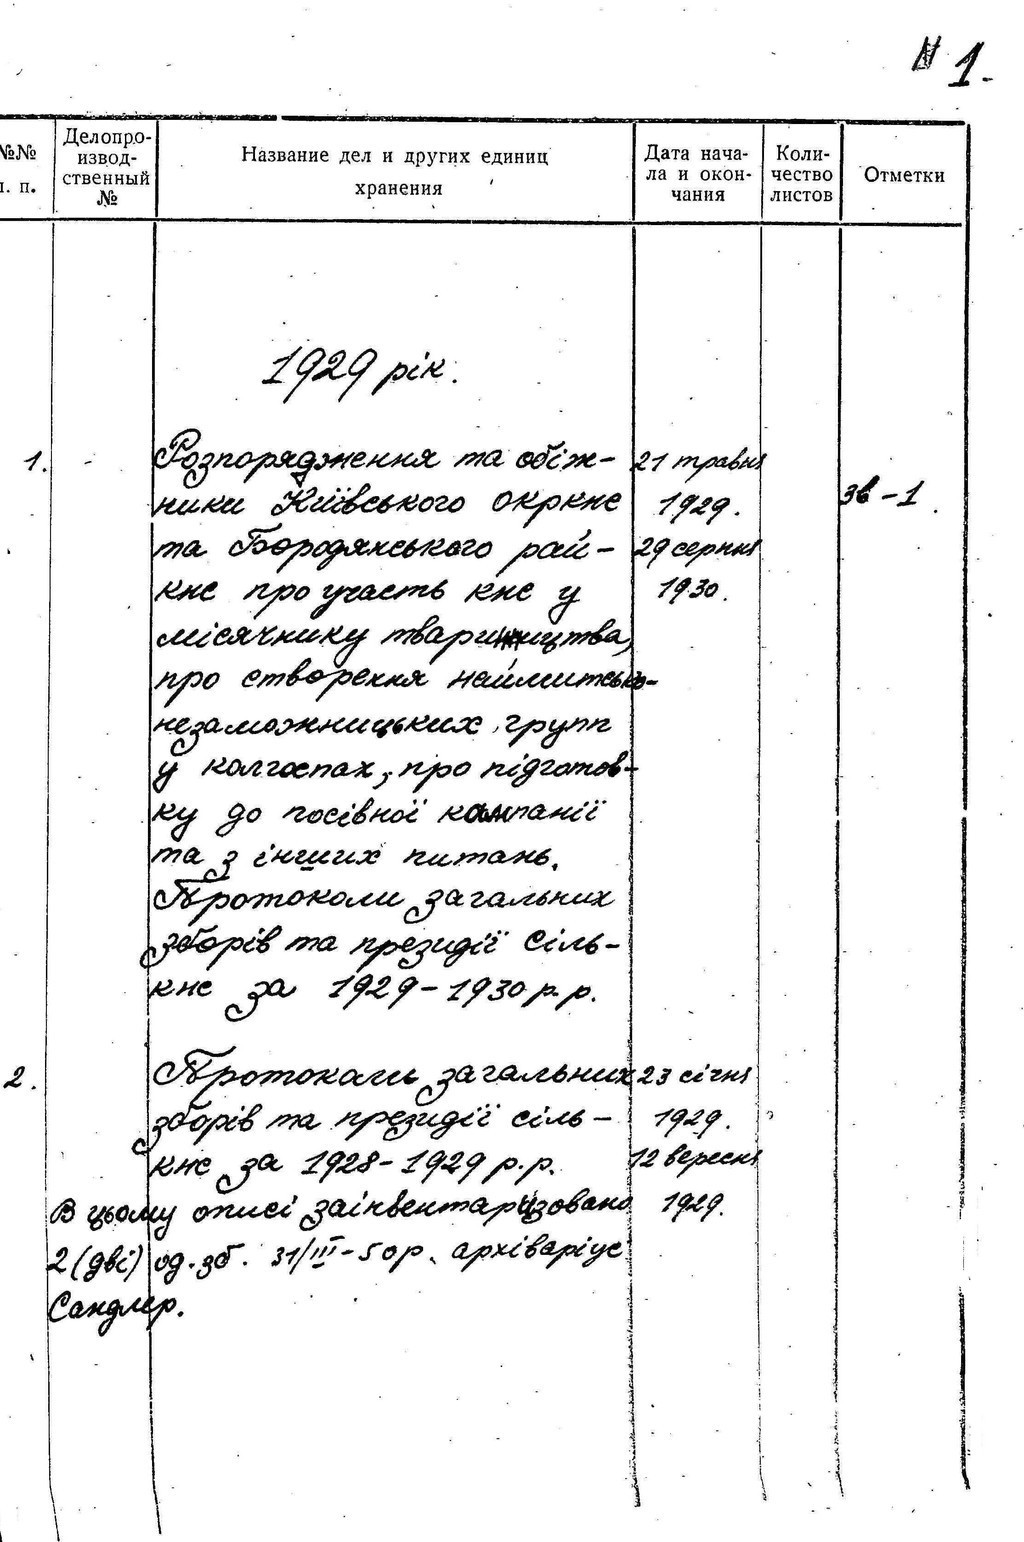 № 1.
№№
п. п.
Делопро-
извод-
ственный
№
Название дел и других единиц
хранения
Дата нача-
ла и окон-
чания
Коли-
чество
листов
Отметки
1929 рік.
1. - Розпорядження та обіж- 21 травня
ники Київського окркнс 1929. зв-1
та Бородянського рай- 29 серпня
кнс про участь кнс у 1930.
місячнику тваринництва,
про створення наймитсько-
незаможницьких групп
у колгоспах, про підготов-
ку до посівної кампанії
та з інших питань.
Протоколи загальних
зборів та президії сіль-
кнс за 1929-1930 р.р.
2. Протоколи загальних 23 січня
зборів та президії сіль- 1929.
кнс за 1928-1929 р.р. 12 вересня
В цьому описі заінвентаризовано 1929.
2 (дві) од. зб. 31/III-50р. архіваріус
Сандлер.